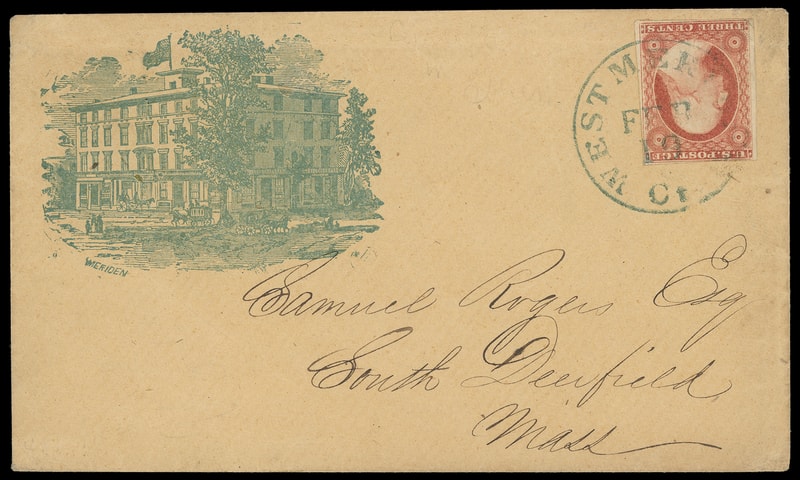 MERIDEN
WEST MERI
FEB
Ct
THREE CENTS
U.S. POSTAGE
Samuel Rogers Esq
South Deerfield
Mass